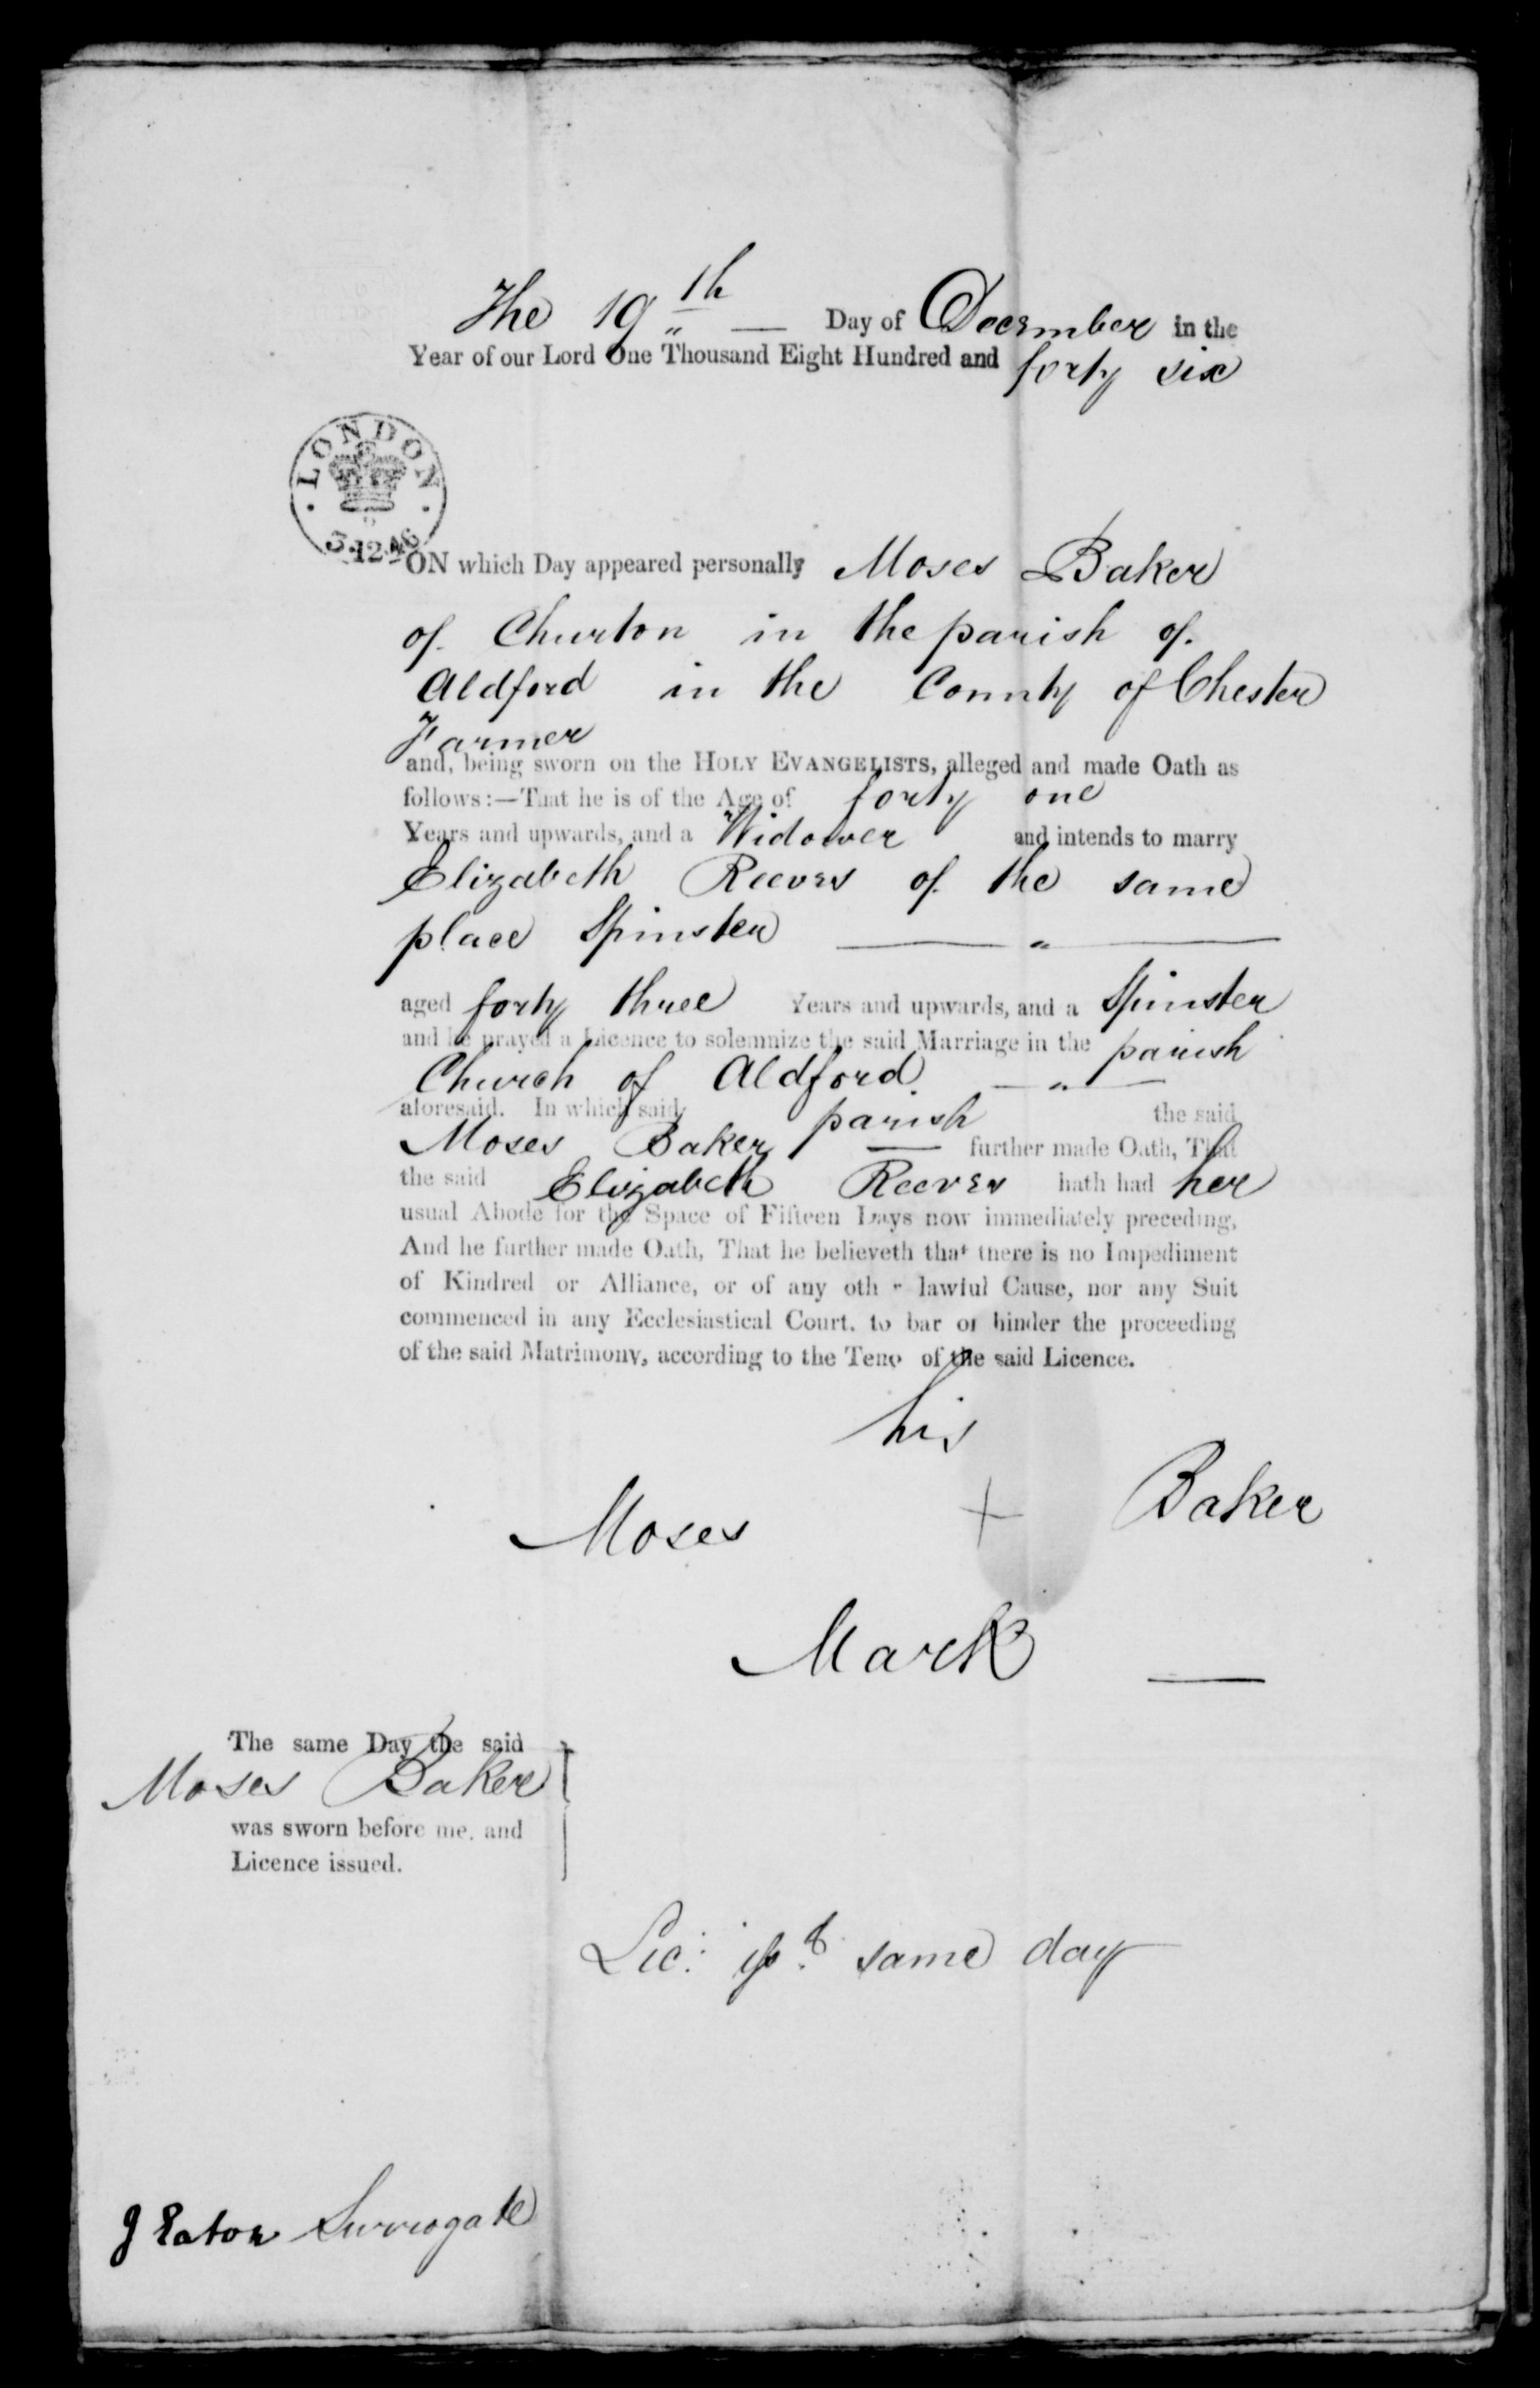 The 19th — Day of December in the
Year of our Lord One Thousand Eight Hundred and forty six
LONDON
3.12.46
ON which Day appeared personally Moses Baker
of Churton in the parish of
Aldford in the County of Chester
Farmer
and, being sworn on the HOLY EVANGELISTS, alleged and made Oath as
follows:—That he is of the Age of forty one
Years and upwards, and a Widower and intends to marry
Elizabeth Reeves of the same
place Spinster — " —
aged forty three Years and upwards, and a Spinster
and he prayed a Licence to solemnize the said Marriage in the parish
Church of Aldford. — " —
aforesaid. In which said parish the said
Moses Baker — further made Oath, That
the said Elizabeth Reeves hath had her
usual Abode for the Space of Fifteen Days now immediately preceding,
And he further made Oath, That he believeth that there is no Impediment
of Kindred or Alliance, or of any oth r lawful Cause, nor any Suit
commenced in any Ecclesiastical Court, to bar or hinder the proceeding
of the said Matrimony, according to the Teno of the said Licence.
his
Moses + Baker
Mark —
The same Day the said
Moses Baker
was sworn before me, and
Licence issued.
Lic: issd. same day
J Eaton Surrogate